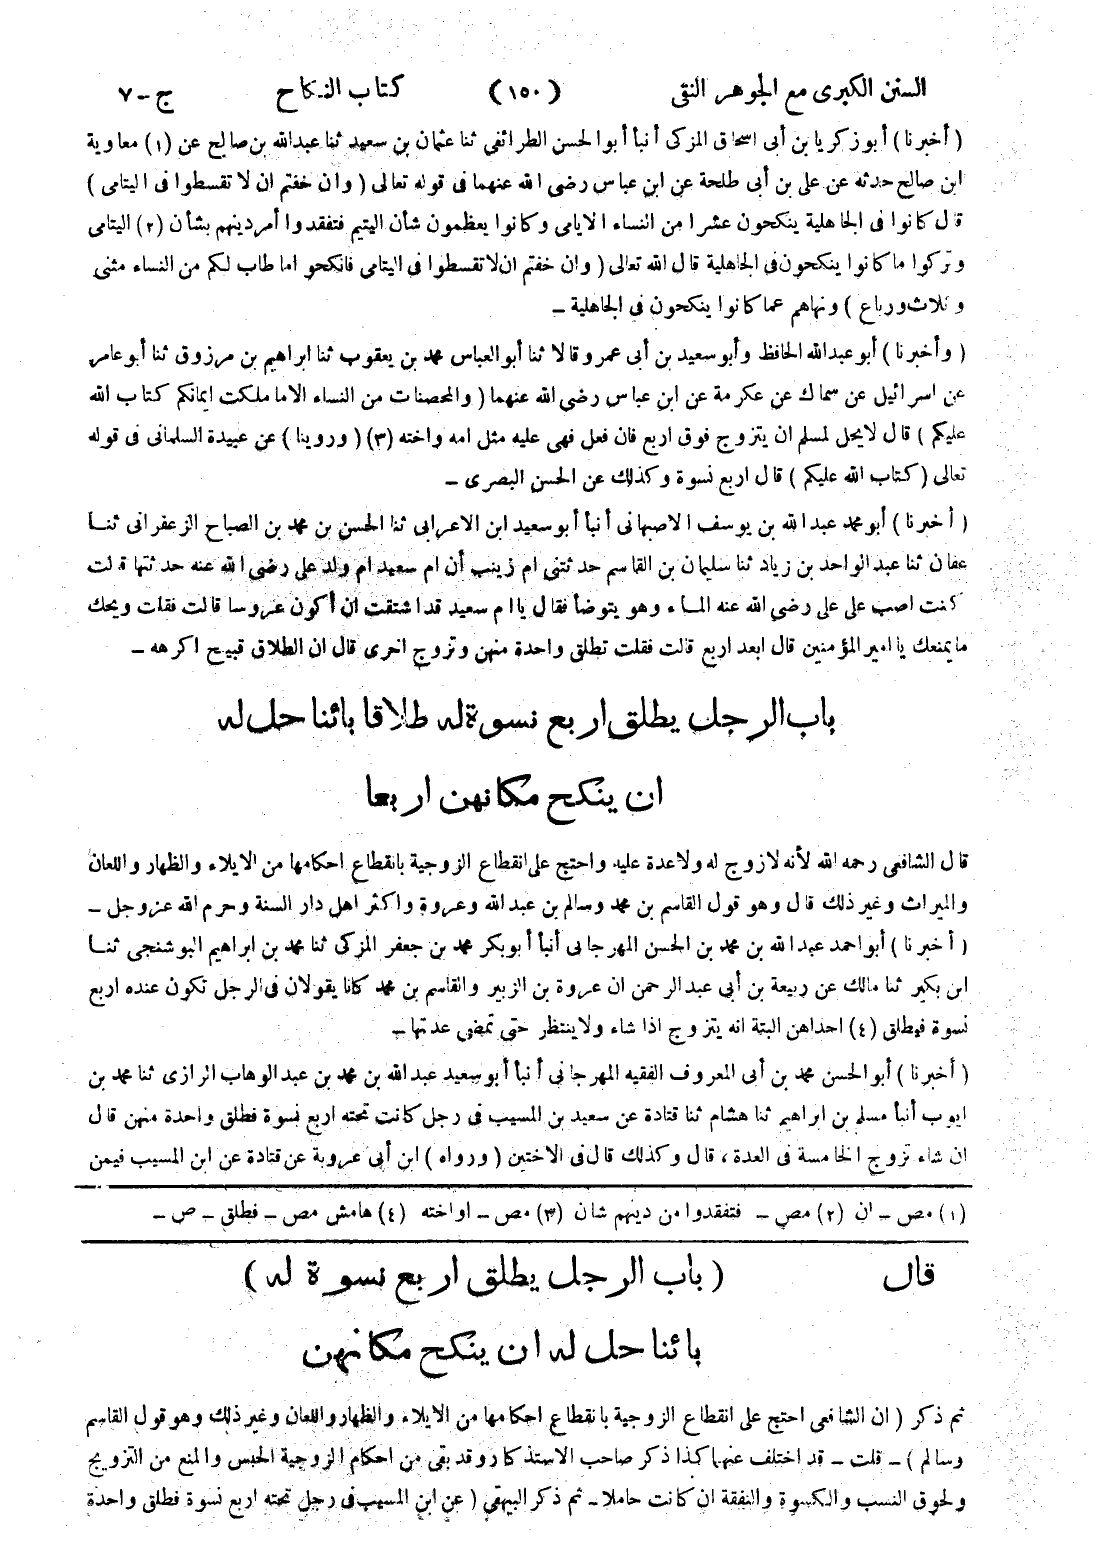 السنن الكبرى مع الجوهر النقى (١٥٠) كتاب النكاح ج – ٧
( أخبرنا ) أبو زكريا بن أبى اسحاق المزكى أنبأ أبو الحسن الطرائفى ثنا عثمان بن سعيد ثنا عبدالله بن صالح عن (١) معاوية
ابن صالح حدثه عن على بن أبى طلحة عن ابن عباس رضى الله عنهما فى قوله تعالى ( وان خفتم ان لا تقسطوا فى اليتامى )
قال كانوا فى الجاهلية ينكحون عشرا من النساء الايامى وكانوا يعظمون شأن اليتيم فتفقدوا أمر دينهم بشأن (٢) اليتامى
وتركوا ما كانوا ينكحون فى الجاهلية قال الله تعالى ( وان خفتم ان لا تقسطوا فى اليتامى فانكحوا ما طاب لكم من النساء مثنى
وثلاث ورباع ) ونهاهم عما كانوا ينكحون فى الجاهلية –
( وأخبرنا ) أبو عبدالله الحافظ وأبو سعيد بن أبى عمرو قالا ثنا أبو العباس محمد بن يعقوب ثنا ابراهيم بن مرزوق ثنا أبو عامر
عن اسرائيل عن سماك عن عكرمة عن ابن عباس رضى الله عنهما ( والمحصنات من النساء الا ما ملكت ايمانكم كتاب الله
عليكم ) قال لا يحل لمسلم ان يتزوج فوق اربع فان فعل فهى عليه مثل امه واخته (٣) ( وروينا ) عن عبيدة السلمانى فى قوله
تعالى ( كتاب الله عليكم ) قال اربع نسوة وكذلك عن الحسن البصرى –
( أخبرنا ) أبو محمد عبد الله بن يوسف الاصبهانى أنبأ أبو سعيد ابن الاعرابى ثنا الحسن بن محمد بن الصباح الزعفرانى ثنا
عفان ثنا عبد الواحد بن زياد ثنا سليمان بن القاسم حدثتنى ام زينب أن ام سعيد ام ولد على رضى الله عنه حدثتها قالت
كنت اصب على على رضى الله عنه الماء وهو يتوضأ فقال يا ام سعيد قد اشتقت ان أكون عروسا قالت فقلت ويحك
ما يمنعك يا امير المؤمنين قال ابعد اربع قالت فقلت تطلق واحدة منهن وتزوج اخرى قال ان الطلاق قبيح اكرهه –
باب الرجل يطلق اربع نسوة له طلاقا بائنا حل له
ان ينكح مكانهن اربعا
قال الشافعى رحمه الله لأنه لا زوج له ولا عدة عليه واحتج على انقطاع الزوجية بانقطاع احكامها من الايلاء والظهار واللعان
والميراث وغير ذلك قال وهو قول القاسم بن محمد وسالم بن عبد الله وعروة واكثر اهل دار السنة وحرم الله عز وجل –
( أخبرنا ) أبو احمد عبد الله بن محمد بن الحسن المهرجانى أنبأ أبو بكر محمد بن جعفر المزكى ثنا محمد بن ابراهيم البوشنجى ثنا
ابن بكير ثنا مالك عن ربيعة بن أبى عبد الرحمن ان عروة بن الزبير والقاسم بن محمد كانا يقولان فى الرجل تكون عنده اربع
نسوة فيطلق (٤) احداهن البتة انه يتزوج اذا شاء ولا ينتظر حتى تمضى عدتها –
( أخبرنا ) أبو الحسن محمد بن أبى المعروف الفقيه المهرجانى أنبأ أبو سعيد عبد الله بن محمد بن عبد الوهاب الرازى ثنا محمد بن
ايوب أنبأ مسلم بن ابراهيم ثنا هشام ثنا قتادة عن سعيد بن المسيب فى رجل كانت تحته اربع نسوة فطلق واحدة منهن قال
ان شاء تزوج الخامسة فى العدة ، قال وكذلك قال فى الاختين ( ورواه ) ابن أبى عروبة عن قتادة عن ابن المسيب فيمن
(١) مص – ان (٢) مص – فتفقدوا من دينهم شان (٣) مص – او اخته (٤) هامش مص – فطلق – ص –
قال ( باب الرجل يطلق اربع نسوة له )
بائنا حل له ان ينكح مكانهن
ثم ذكر ( ان الشافعى احتج على انقطاع الزوجية بانقطاع احكامها من الايلاء والظهار واللعان وغير ذلك وهو قول القاسم
وسالم ) – قلت – قد اختلف عنهما كذا ذكر صاحب الاستذكار وقد بقى من احكام الزوجية الحبس والمنع من التزويج
ولحوق النسب والكسوة والنفقة ان كانت حاملا – ثم ذكر البيهقى ( عن ابن المسيب فى رجل تحته اربع نسوة فطلق واحدة